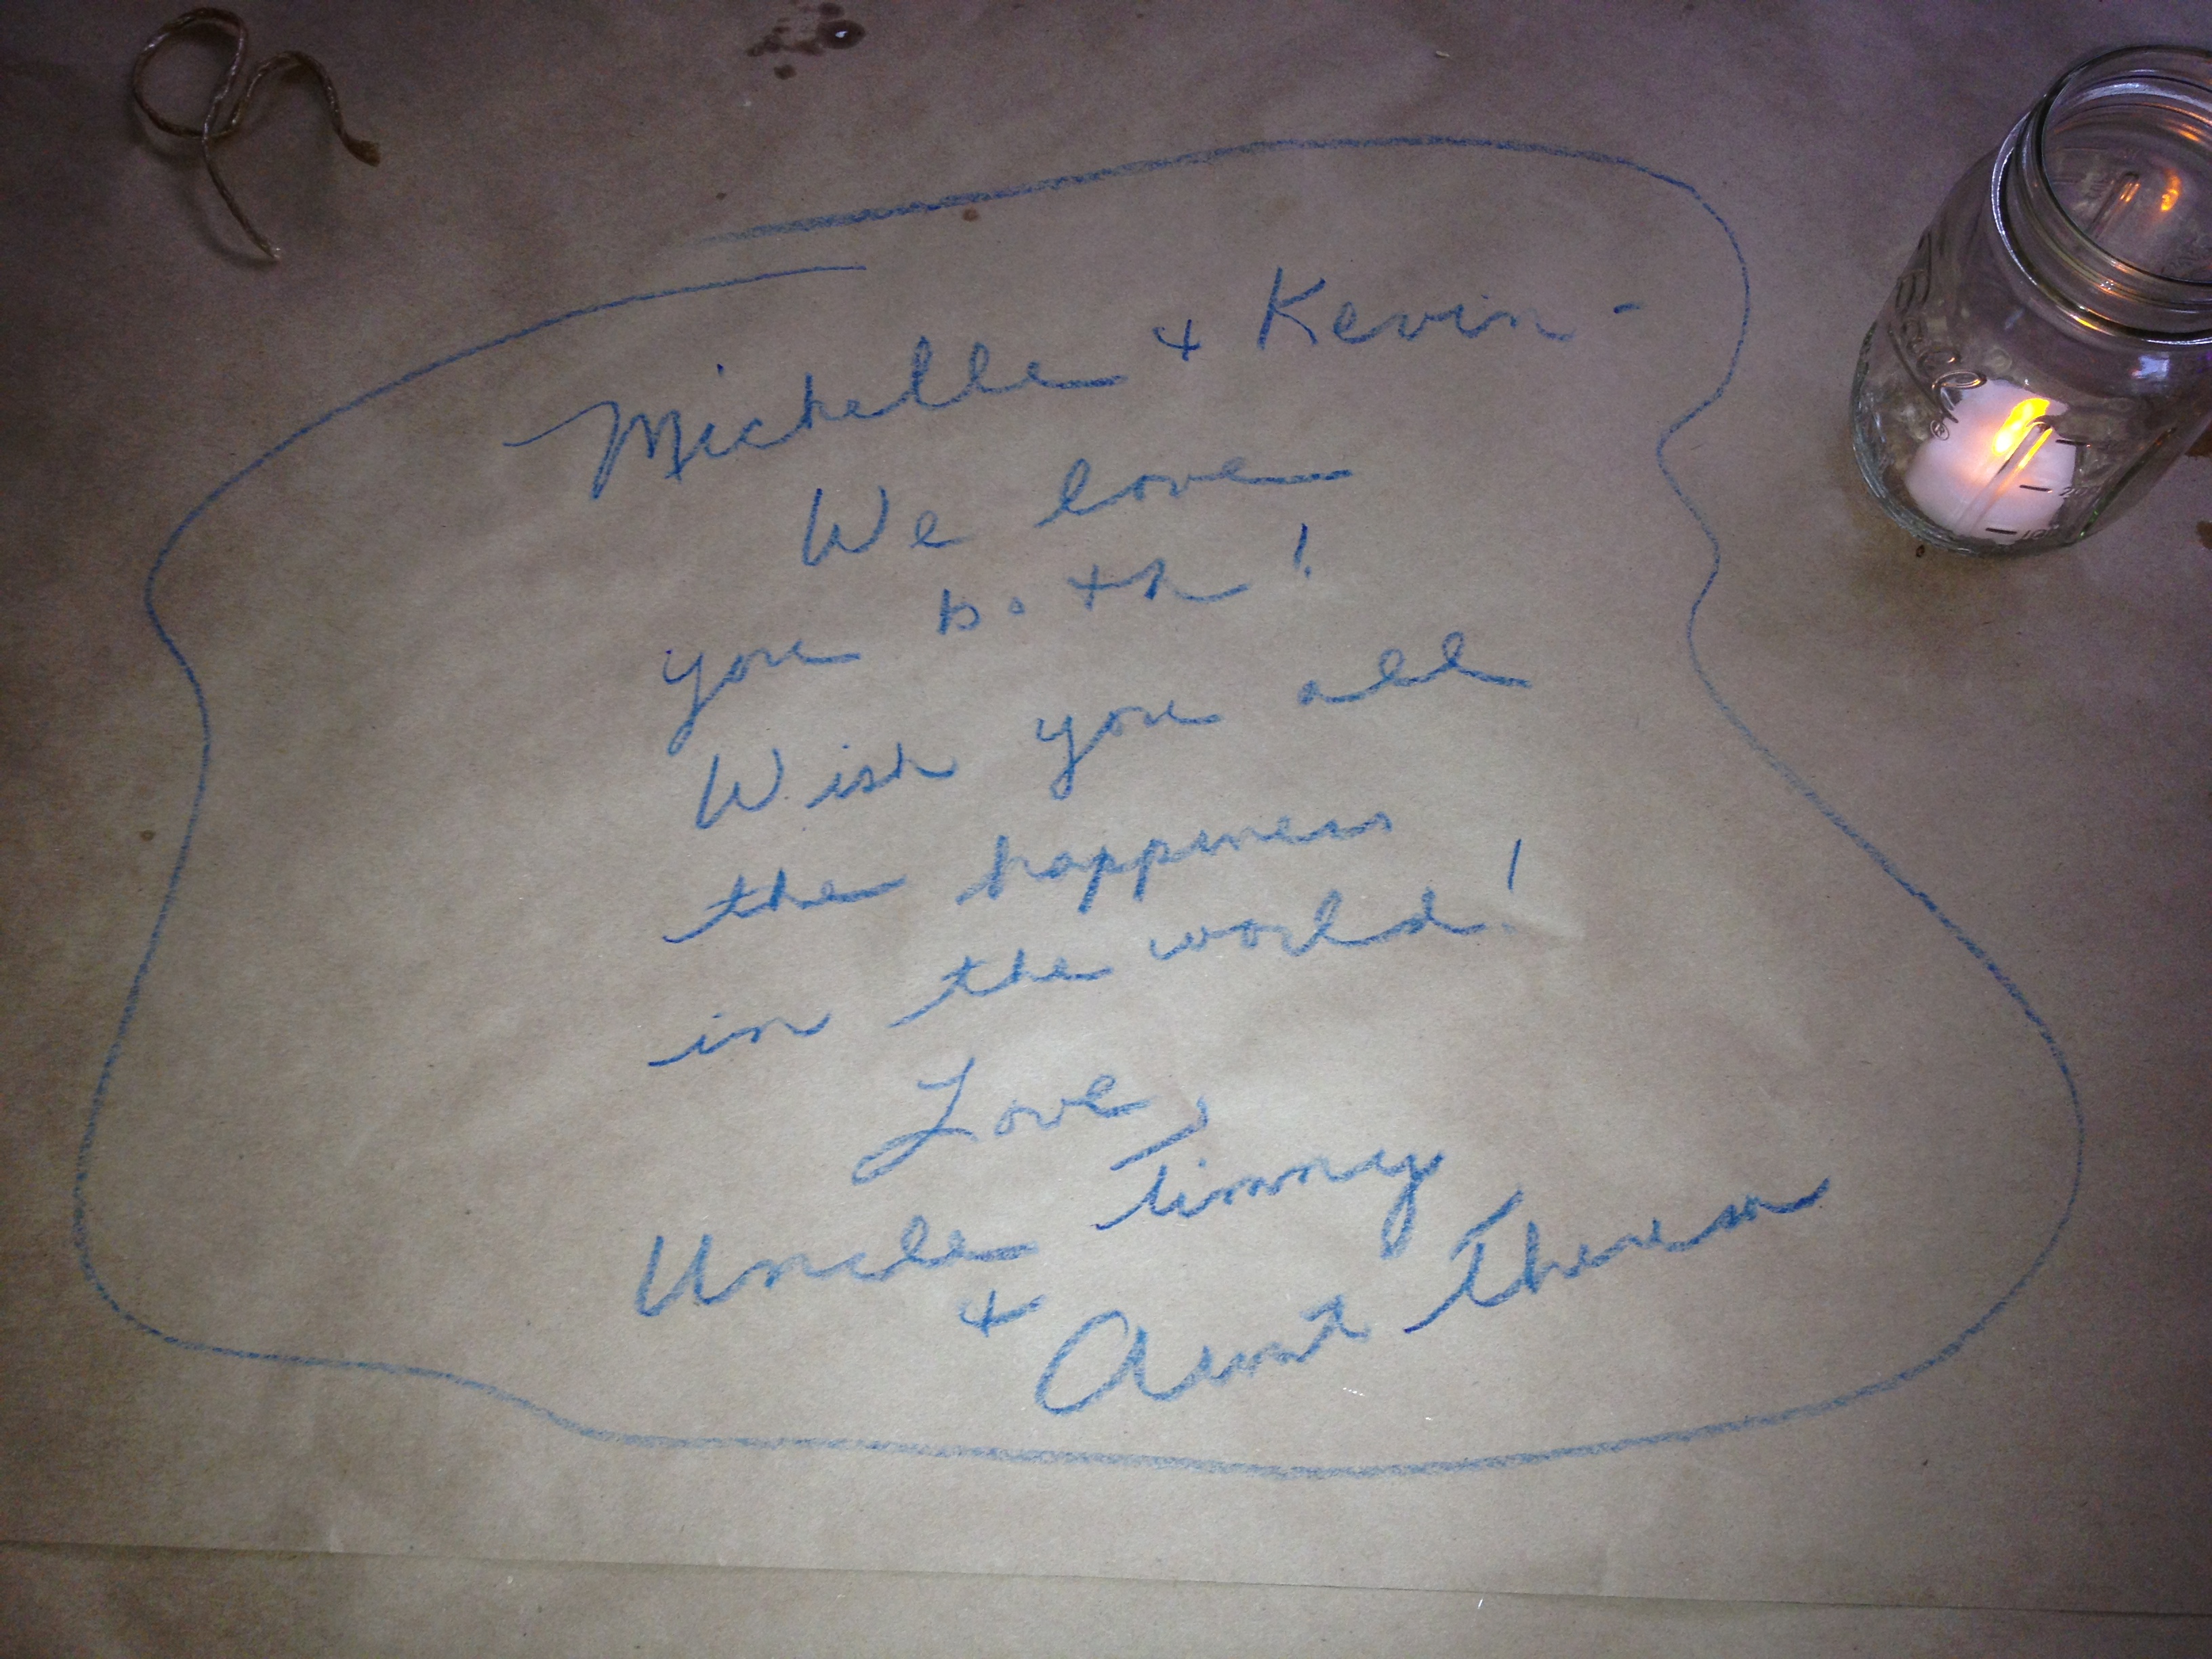 Michelle & Kevin -
We love
you both!
Wish you all
the happiness
in the world!
Love,
Uncle Timmy
& Aunt Theresa